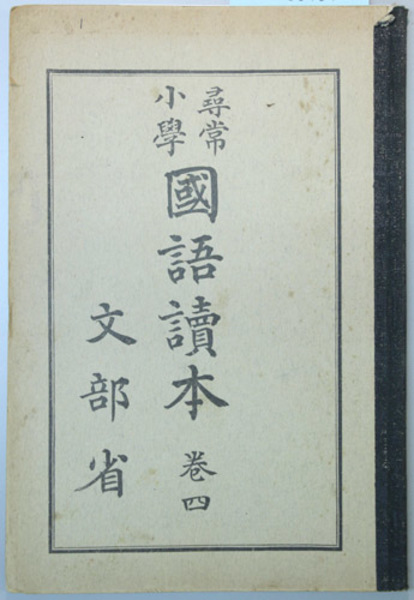 尋常
小學
國語讀本 卷四
文部省